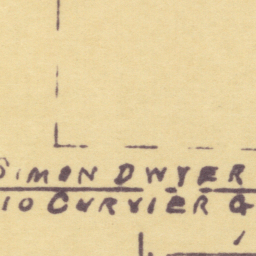 SIMON DWYER
10 CURVIER G